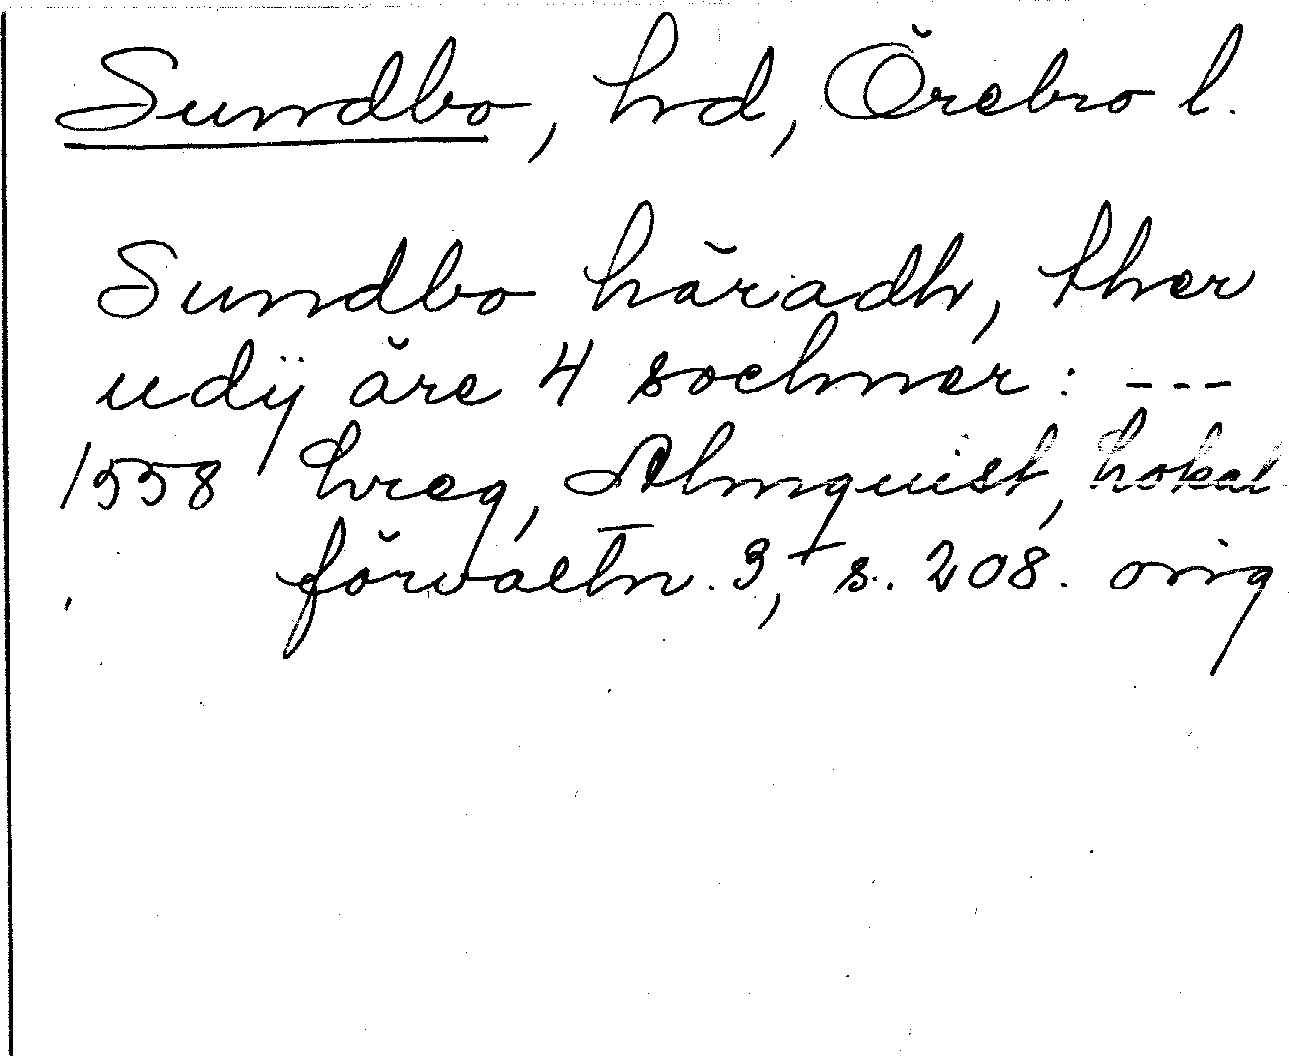 Sundbo, hd, Örebro l.
Sundbo häradh, ther
udij äre 4 sochner: ---
1558 hreg, Almquist, Lokal
förvaltn. 3, s. 208. orig